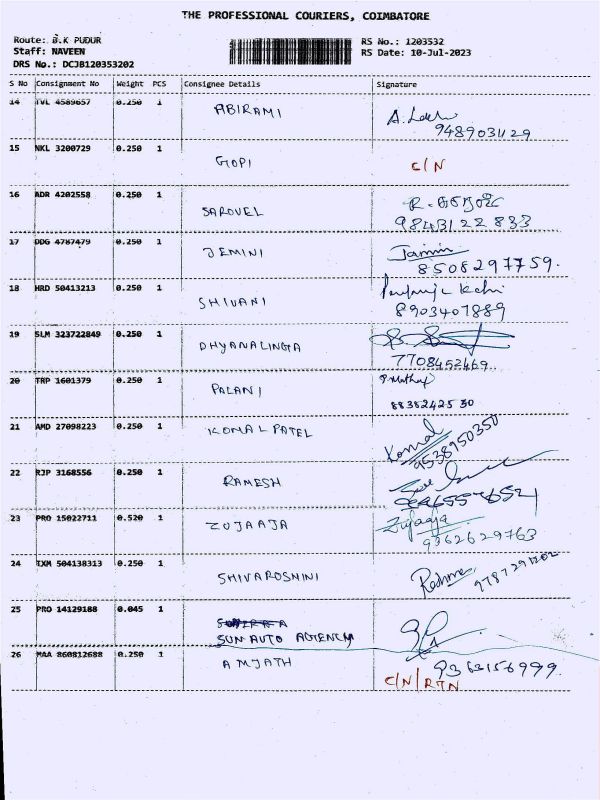 THE PROFESSIONAL COURIERS, COIMBATORE
Route: B.K PUDUR
Staff: NAVEEN
DRS No.: DCJB120353202
RS No.: 1203532
RS Date: 10-Jul-2023
S No Consignment No Weight PCS Consignee Details Signature
14 TVL 4589657 0.250 1 ABIRAMI
9489031129
15 NKL 3200729 0.250 1 GOPI C/N
16 ADR 4202558 0.250 1 SAROVEL
9843122833
17 DDG 4787479 0.250 1 JEMINI Jamini
8508297759.
18 HRD 50413213 0.250 1 SHIVANI
8903407889
19 SLM 323722849 0.250 1 DHYANALINGTA
7708452469
20 TRP 1601379 0.250 1 PALANI
8838242530
21 AMD 27098223 0.250 1 KOMAL PATEL Komal
9538950350
22 RJP 3168556 0.250 1 RAMESH
23 PRO 15022711 0.520 1 ZUJAAJA Zujaaja
9362629763
24 TXM 504138313 0.250 1 SHIVAROSNINI
25 PRO 14129188 0.045 1
SUN AUTO AGENCY
26 MAA 860812688 0.250 1 AMJATH 9363156999.
C/N/RTN